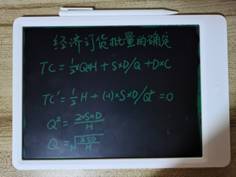 经济订货批量的确定
TC = ½Q×H + S×D/Q + D×C
TC' = ½H + (-1)×S×D/Q² = 0
Q² = 2×S×D/H
Q =